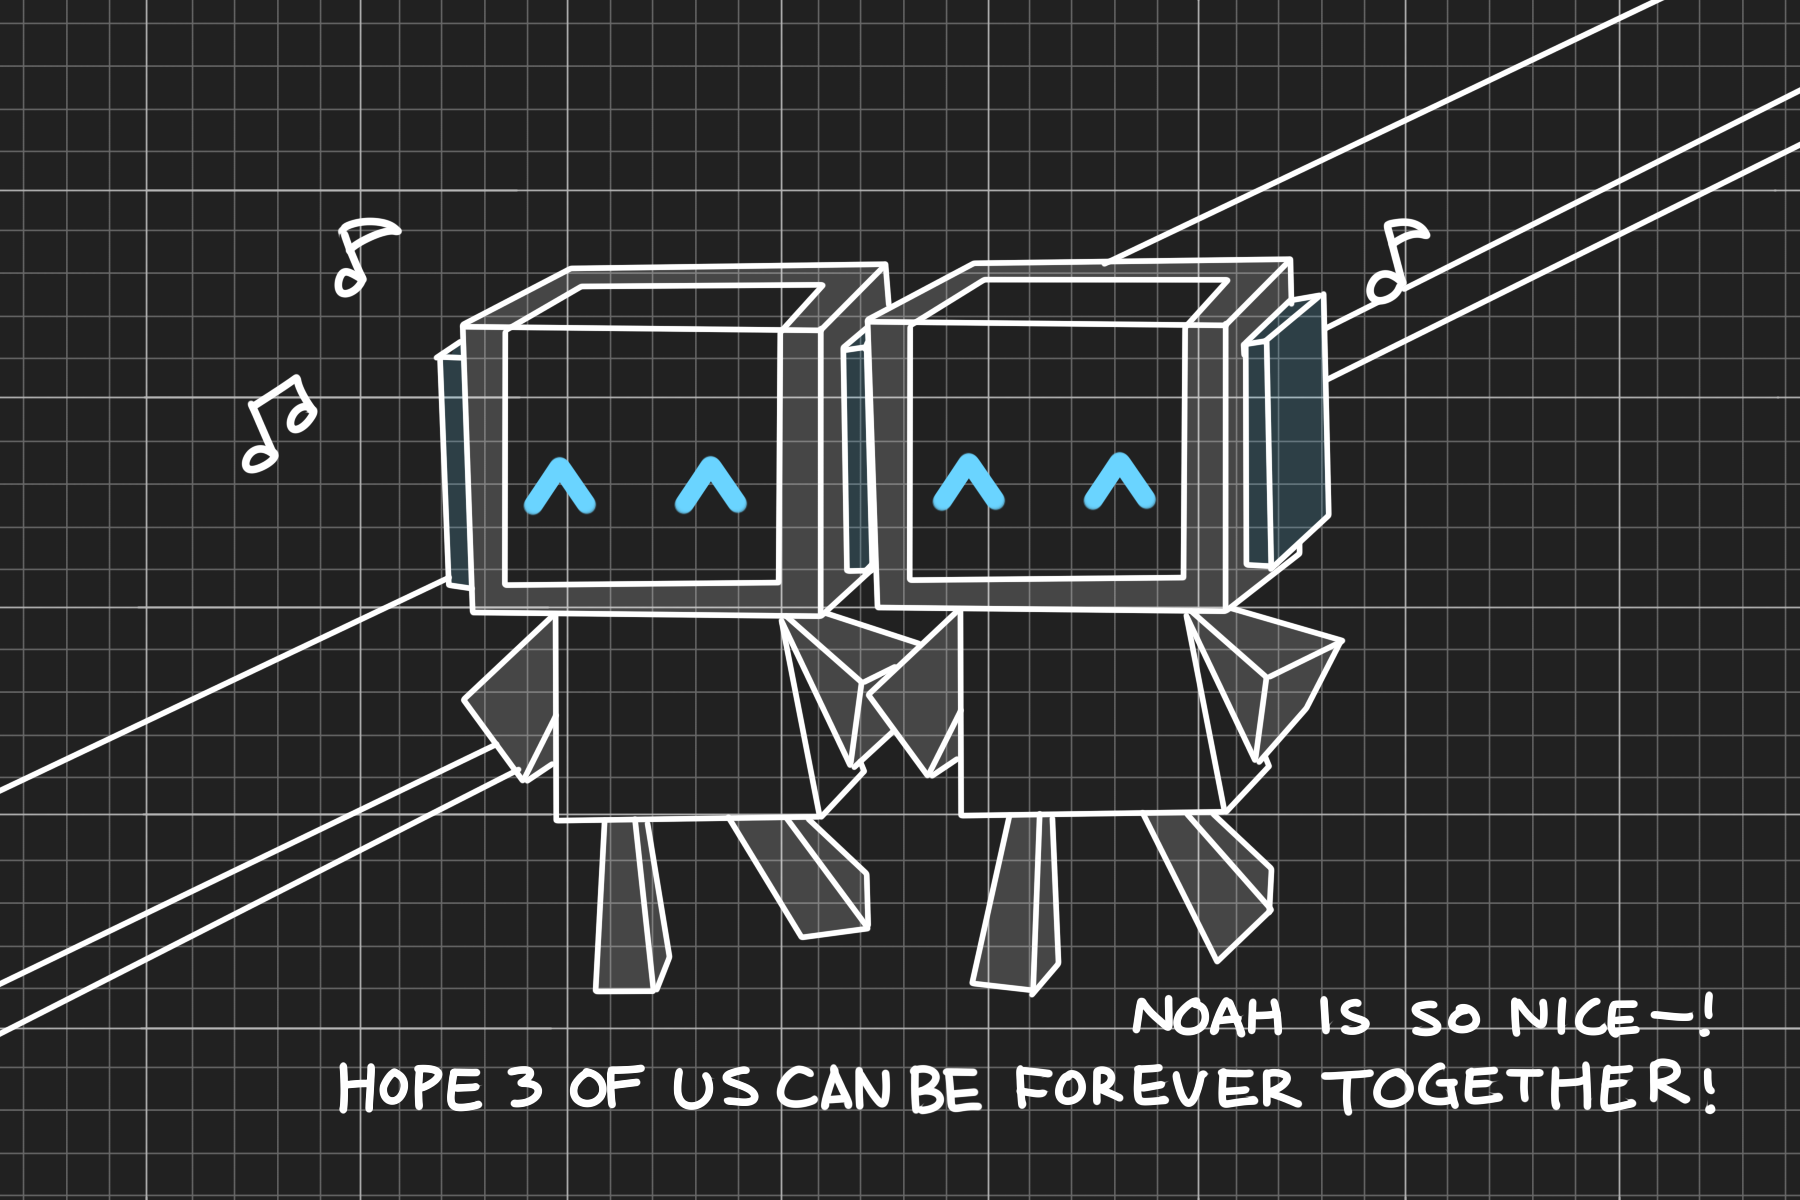 NOAH IS SO NICE—!
HOPE 3 OF US CAN BE FOREVER TOGETHER!